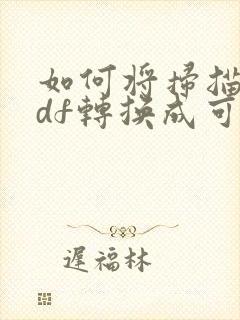 如何将掃描
df轉換成可
遲福林